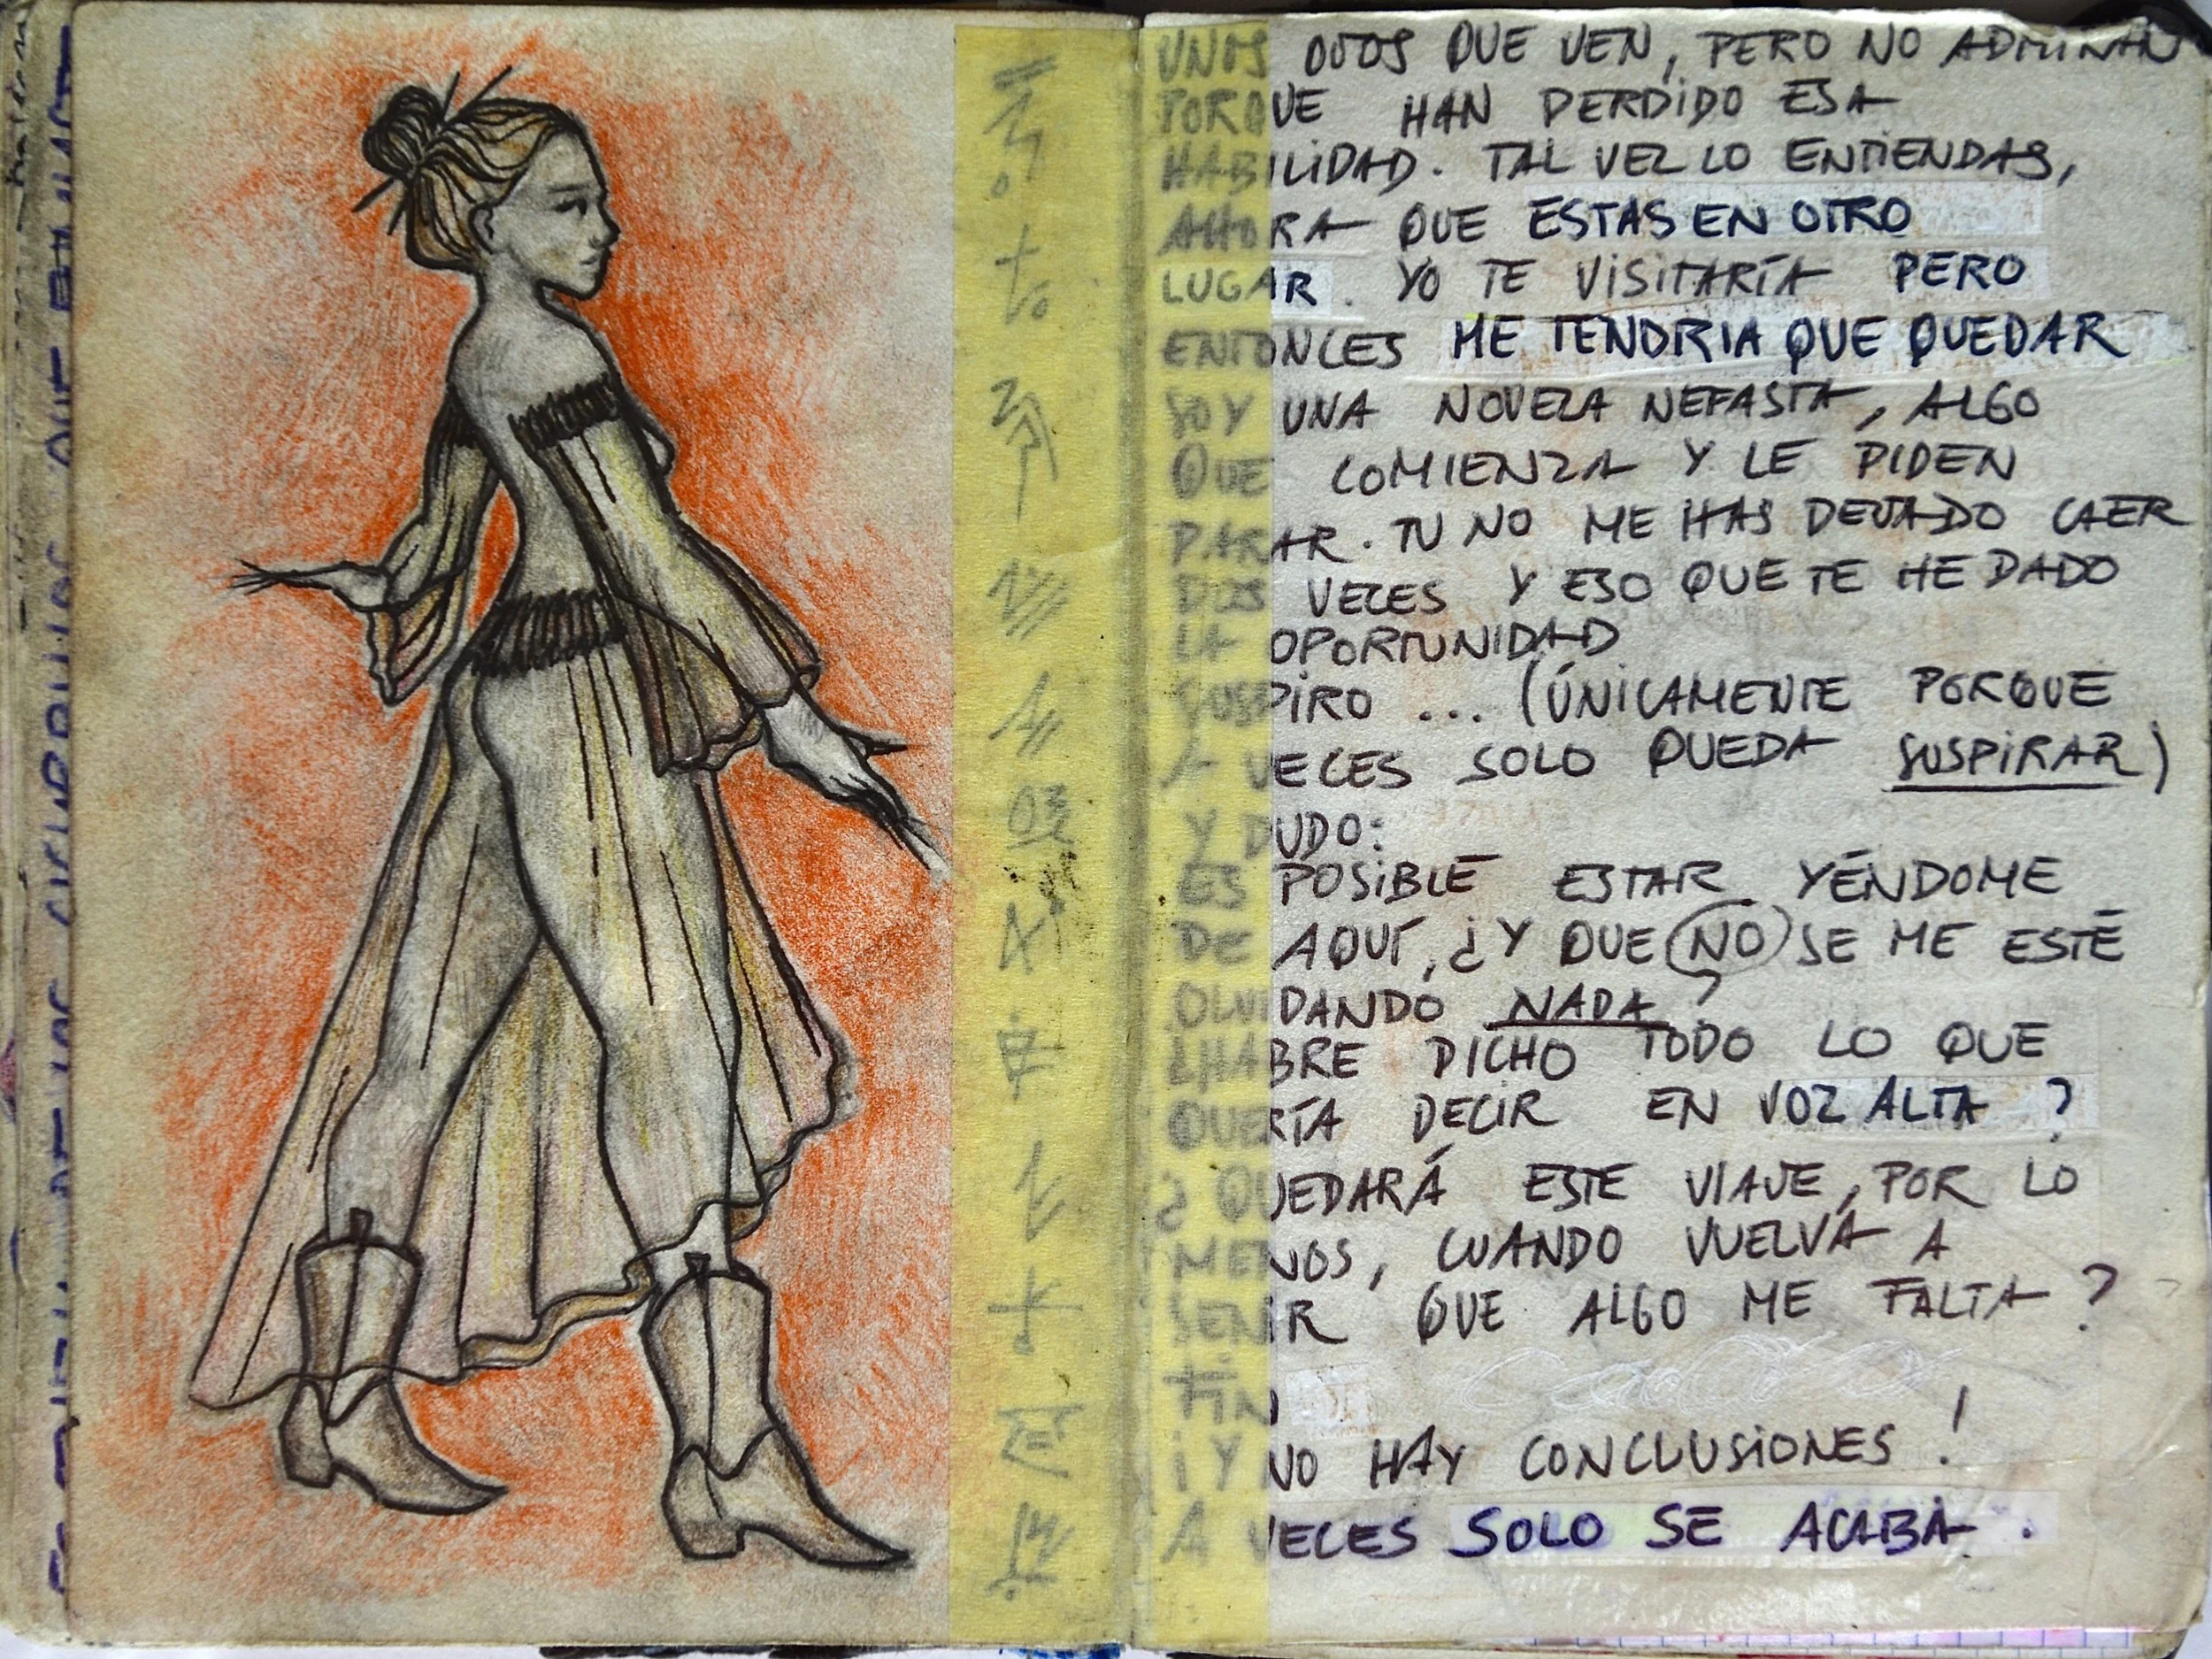 UNOS OJOS QUE VEN, PERO NO ADMIRAN
PORQUE HAN PERDIDO ESA
HABILIDAD. TAL VEZ LO ENTIENDAS,
AHORA QUE ESTAS EN OTRO
LUGAR. YO TE VISITARÍA PERO
ENTONCES ME TENDRIA QUE QUEDAR
SOY UNA NOVELA NEFASTA, ALGO
QUE COMIENZA Y LE PIDEN
PARAR. TU NO ME HAS DEJADO CAER
DOS VECES Y ESO QUE TE HE DADO
LA OPORTUNIDAD
SUSPIRO ... (ÚNICAMENTE PORQUE
A VECES SOLO QUEDA SUSPIRAR)
Y DUDO:
ES POSIBLE ESTAR YÉNDOME
DE AQUÍ, ¿Y QUE NO SE ME ESTÉ
OLVIDANDO NADA?
¿HABRE DICHO TODO LO QUE
QUERÍA DECIR EN VOZ ALTA?
¿QUEDARÁ ESTE VIAJE, POR LO
MENOS, CUANDO VUELVA A
SENTIR QUE ALGO ME FALTA?
FIN
¡Y NO HAY CONCLUSIONES!
A VECES SOLO SE ACABA.